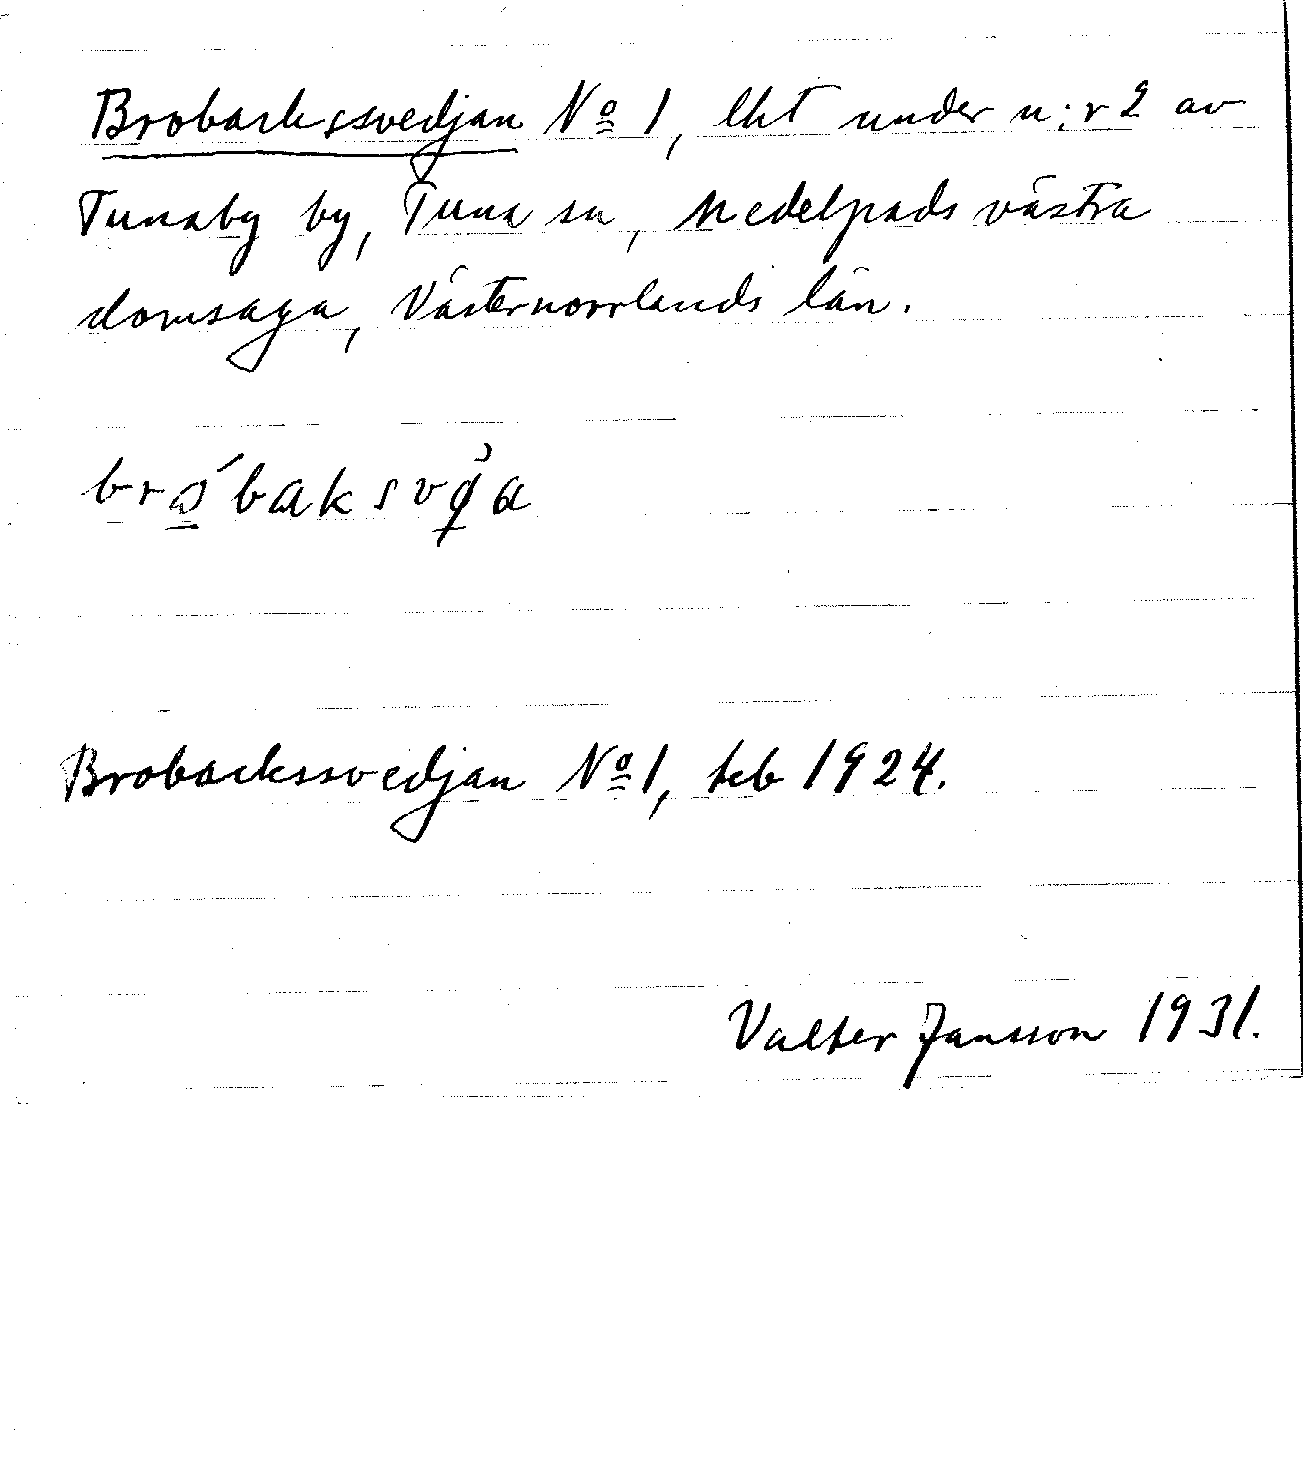 Brobackssvedjan Nº 1, lht under n:r 2 av
Tunaby by, Tuna sn, Medelpads västra
domsaga, Västernorrlands län.
Brobackssvedjan Nº 1, teb 1924.
Valter Jansson 1931.